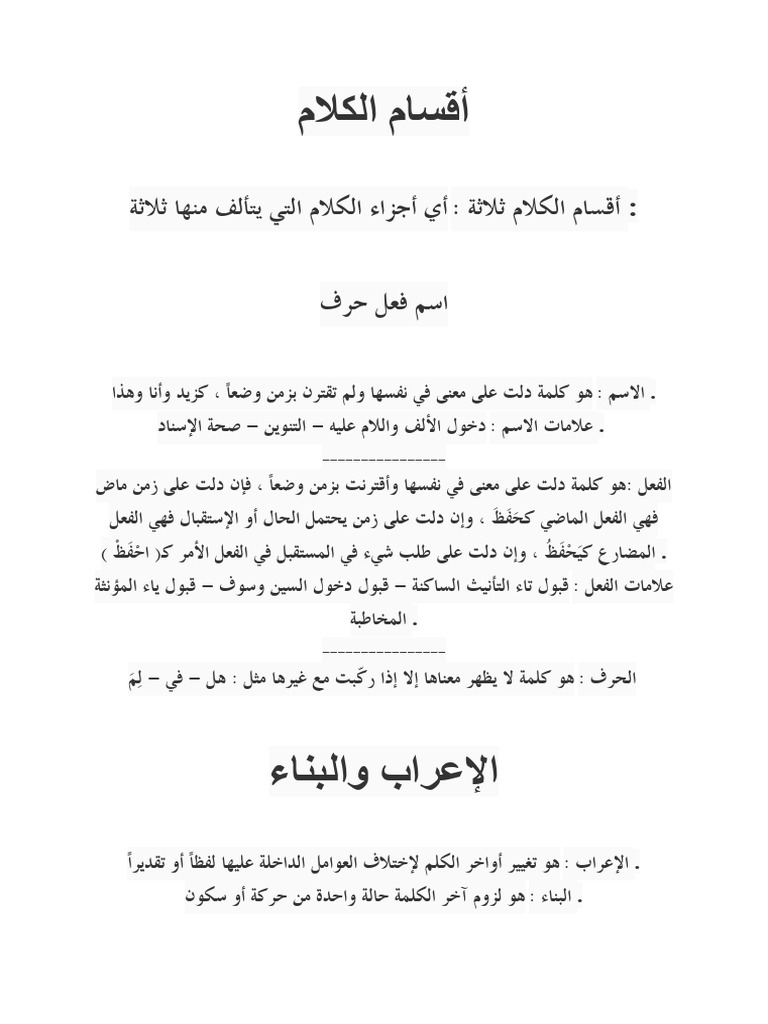 أقسام الكلام
: أقسام الكلام ثلاثة : أي أجزاء الكلام التي يتألف منها ثلاثة
اسم فعل حرف
. الاسم : هو كلمة دلت على معنى في نفسها ولم تقترن بزمن وضعاً ، كزيد وأنا وهذا
. علامات الاسم : دخول الألف واللام عليه – التنوين – صحة الإسناد
----------------
الفعل :هو كلمة دلت على معنى في نفسها وأقترنت بزمن وضعاً ، فإن دلت على زمن ماض
فهي الفعل الماضي كحَفَظَ ، وإن دلت على زمن يحتمل الحال أو الإستقبال فهي الفعل
. المضارع كيَحْفَظُ ، وإن دلت على طلب شيء في المستقبل في الفعل الأمر كـ( احْفَظْ )
علامات الفعل : قبول تاء التأنيث الساكنة – قبول دخول السين وسوف – قبول ياء المؤنثة
. المخاطبة
----------------
الحرف : هو كلمة لا يظهر معناها إلا إذا ركّبت مع غيرها مثل : هل – في – لِمَ
الإعراب والبناء
. الإعراب : هو تغيير أواخر الكلم لإختلاف العوامل الداخلة عليها لفظاً أو تقديراً
. البناء : هو لزوم آخر الكلمة حالة واحدة من حركة أو سكون